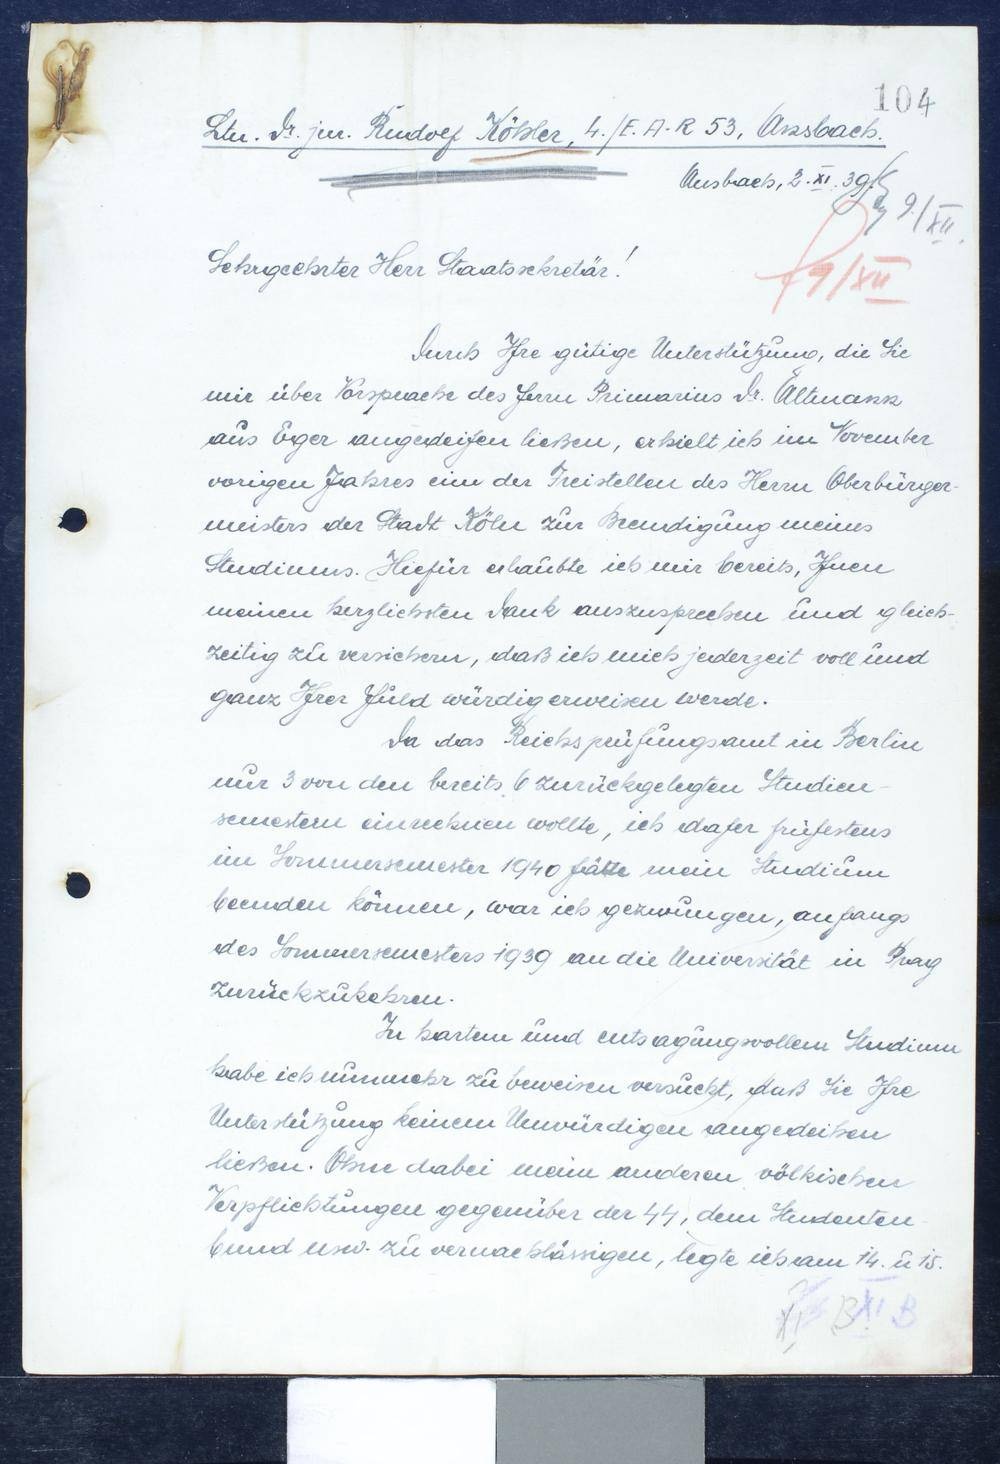 104
Ltn. Dr. jur. Rudolf Köhler, 4./E.A.R 53, Ansbach.
Ansbach, 2.XI.39.
9/XII.
9/XII
Sehrgeehrter Herr Staatssekretär!
Durch Ihre gütige Unterstützung, die Sie
mir über Vorsprache des Herrn Primarius Dr. Altmann
aus Eger angedeihen ließen, erhielt ich im November
vorigen Jahres eine der Freistellen des Herrn Oberbürger-
meisters der Stadt Köln zur Beendigung meines
Studiums. Hiefür erlaubte ich mir bereits, Ihnen
meinen herzlichsten Dank auszusprechen und gleich-
zeitig zu versichern, daß ich mich jederzeit voll und
ganz Ihrer Huld würdig erweisen werde.
Da das Reichsprüfungsamt in Berlin
nur 3 von den bereits 6 zurückgelegten Studien-
semestern einrechnen wollte, ich daher frühestens
im Sommersemester 1940 hätte mein Studium
beenden können, war ich gezwungen, anfangs
des Sommersemesters 1939 an die Universität in Prag
zurückzukehren.
In hartem und entsagungsvollem Studium
habe ich nunmehr zu beweisen versucht, daß Sie Ihre
Unterstützung keinem Unwürdigen angedeihen
ließen. Ohne dabei mein anderen völkischen
Verpflichtungen gegenüber der SS, dem Studenten-
bund usw. zu vernachlässigen, legte ich am 14. u 15.
XI B XI B